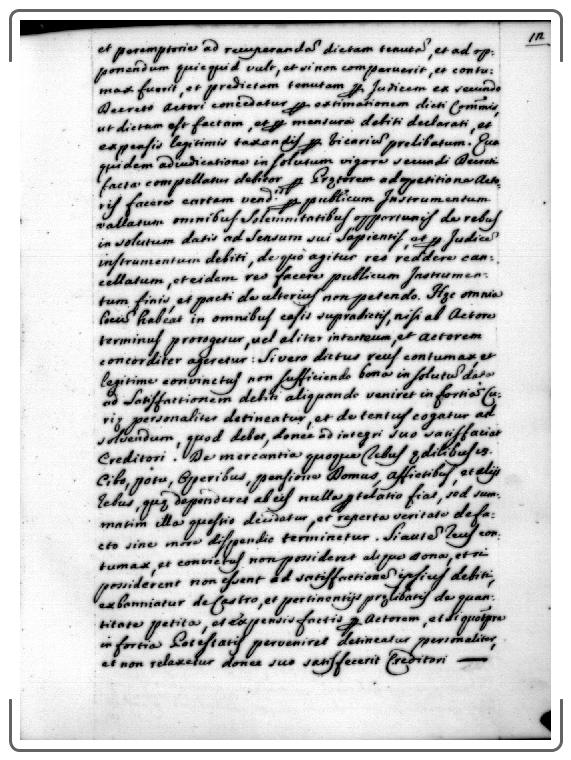 112
et peremptorie ad recuperandã dictam tenutã, et ad op:
ponendum quicquid vult, et si non comparuerit, et contu:
max fuerit, et predictam tenutam ꝑ Judicem ex secundo
Decreto Actori concedatur ꝑ extimationem dicti Com̃is,
ut dictum est factam, et ꝑ mensura debiti declarati, et
expensis legitimis taxandis ꝑ Vicariũ prelibatum. Qua
quidem adiudicatione in solutum vigore secundi Decreti
facta compellatur debitor ꝑ Prętorem ad petitione Acto:
ris facere cartam vend.nis ꝑ publicum Instrumentum
vallatum omnibus solemnitatibus opportunis de rebus
in solutum datis ad sensum sui sapientis, et ꝑ Judicẽ
instrumentum debiti, de quo agitur reo reddere can:
cellatum, et eidem reo facere publicum Instrumen:
tum finis, et pacti de ulterius non petendo. Hęc omnia
locũ habeat in omnibus casis supradictis, nisi ab Actore
terminus prorogetur, vel aliter inter eum, et Actorem
concorditer ageretur: Si vero dictus reus contumax, et
legitime convinctus non sufficiendo bona in solutũ data
ad satisfactionem debiti aliquando veniret in fortiã Cu:
rię personaliter detineatur, et detentus cogatur ad
solvendum, quod debet, donec ad integrũ suo satisfaciat
Creditori. De mercantia quoque rebus
Cibo, potu, Operibus, pensione Domus, affictibus, et alijs
rebus, quę dependeret ab eis nulla fiat, sed sum:
matim illa questio decidatur, et reperta veritate de fa:
cto sine more dispendio terminetur. Si autẽ reus con:
tumax, et convictus non possideret aliqua bona, et si
possiderent non essent ad satisfactionem ipsius debiti,
exbanniatur de Castro, et pertinentijs prelibatis de quan:
titate petita, et expensis factis ꝑ Actorem, et si
in fortia Potestatis perveniret detineatur personaliter,
et non relaxetur donec suo satisfecerit Creditori —